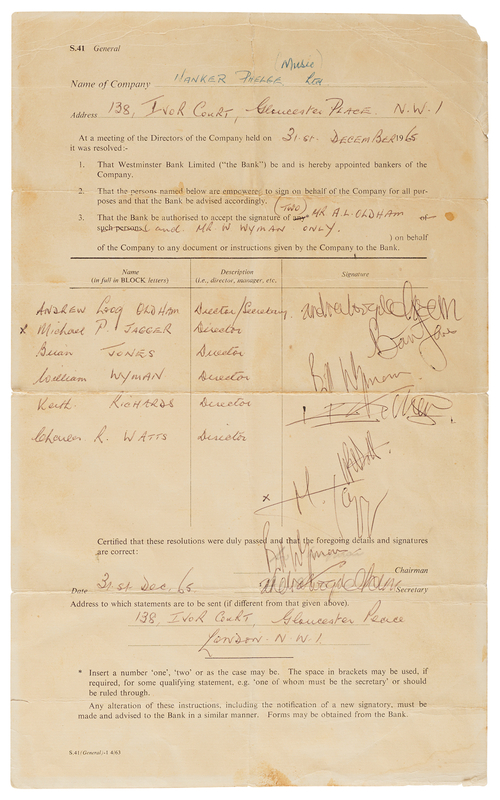 S.41 General
(Music)
Name of Company NANKER PHELGE Ltd.
Address 138, IVOR COURT, GLOUCESTER PLACE N.W.1
At a meeting of the Directors of the Company held on 31st. DECEMBER 1965
it was resolved:-
1. That Westminster Bank Limited ("the Bank") be and is hereby appointed bankers of the
Company.
2. That the persons named below are empowered to sign on behalf of the Company for all pur-
poses and that the Bank be advised accordingly.
3. That the Bank be authorised to accept the signature of any (TWO) MR A.L. OLDHAM of
such persons ( and MR W WYMAN ONLY.
) on behalf
of the Company to any document or instructions given by the Company to the Bank.
Name Description Signature
(in full in BLOCK letters) (i.e., director, manager, etc.
ANDREW LOOG OLDHAM Director/Secretary Andrew Loog Oldham
x Michael P. JAGGER Director
Brian JONES Director Brian Jones
William WYMAN Director Bill Wyman.
Keith RICHARDS Director
Charles R. WATTS Director
x M. Jagger
Certified that these resolutions were duly passed and that the foregoing details and signatures
are correct:
Bill Wyman Chairman
Date 31st Dec, 65 Andrew Loog Oldham Secretary
Address to which statements are to be sent (if different from that given above).
138, IVOR COURT, Gloucester Place
LONDON. N W. 1
* Insert a number 'one', 'two' or as the case may be. The space in brackets may be used, if
required, for some qualifying statement, e.g. 'one of whom must be the secretary' or should
be ruled through.
Any alteration of these instructions, including the notification of a new signatory, must be
made and advised to the Bank in a similar manner. Forms may be obtained from the Bank.
S.41(General)-1 4/63